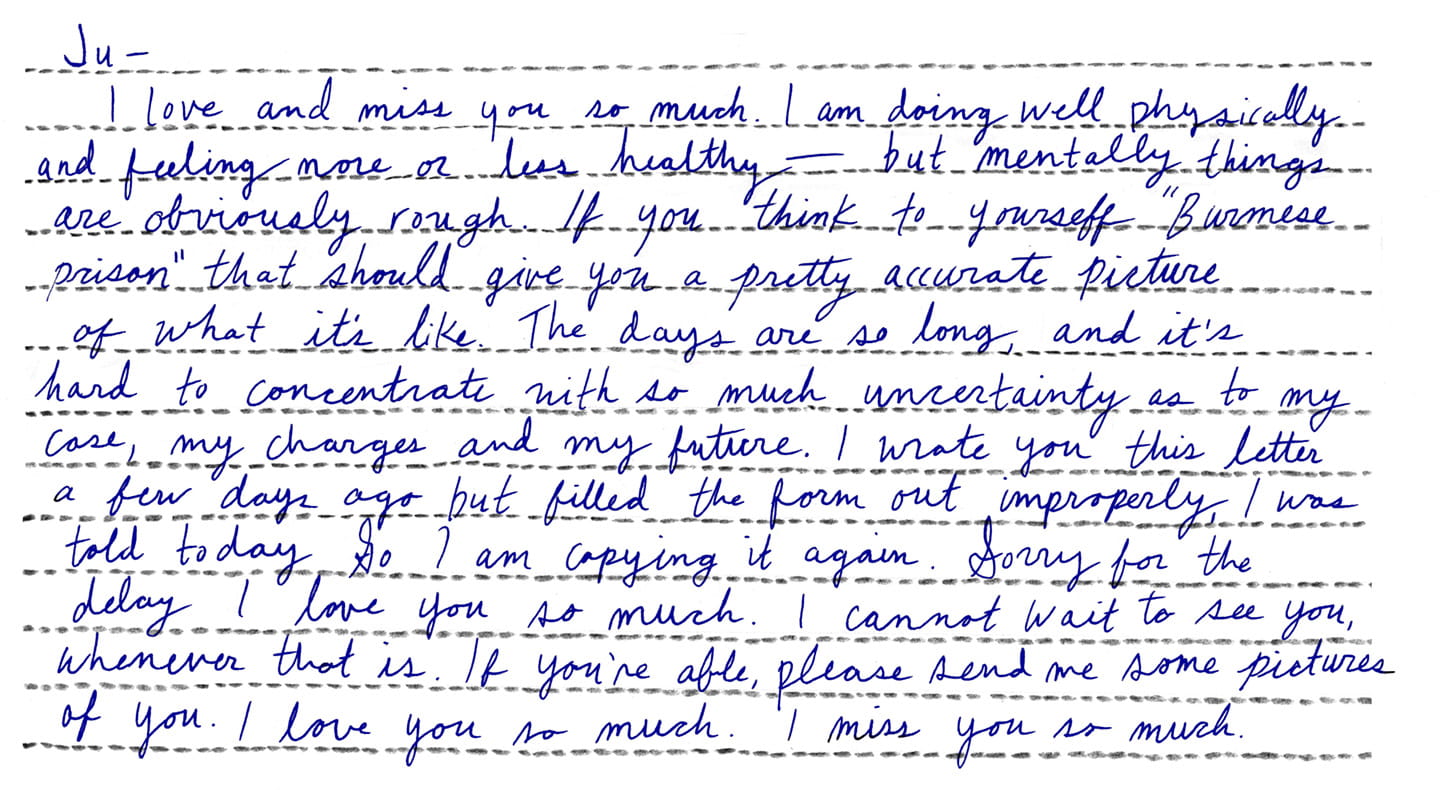 Ju –
I love and miss you so much. I am doing well physically
and feeling more or less healthy — but mentally things
are obviously rough. If you think to yourself "Burmese
prison" that should give you a pretty accurate picture
of what it's like. The days are so long, and it's
hard to concentrate with so much uncertainty as to my
case, my charges and my future. I wrote you this letter
a few days ago but filled the form out improperly, I was
told today. So I am copying it again. Sorry for the
delay I love you so much. I cannot wait to see you,
whenever that is. If you're able, please send me some pictures
of you. I love you so much. I miss you so much.